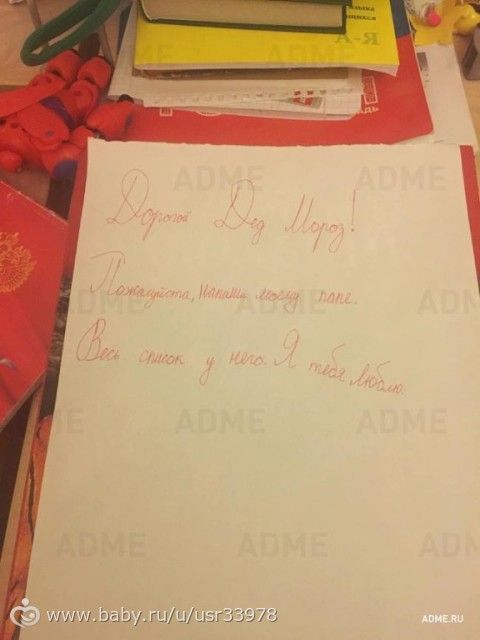 языка
ющихся
А-Я
Дорогой Дед Мороз!
Пожалуйста, напиши моему папе.
Весь список у него. Я тебя люблю.
ADME
ADME
ADME
ADME
ADME
ADME
ADME
ADME
ADME
ADME
ADME
ADME.RU
www.baby.ru/u/usr33978